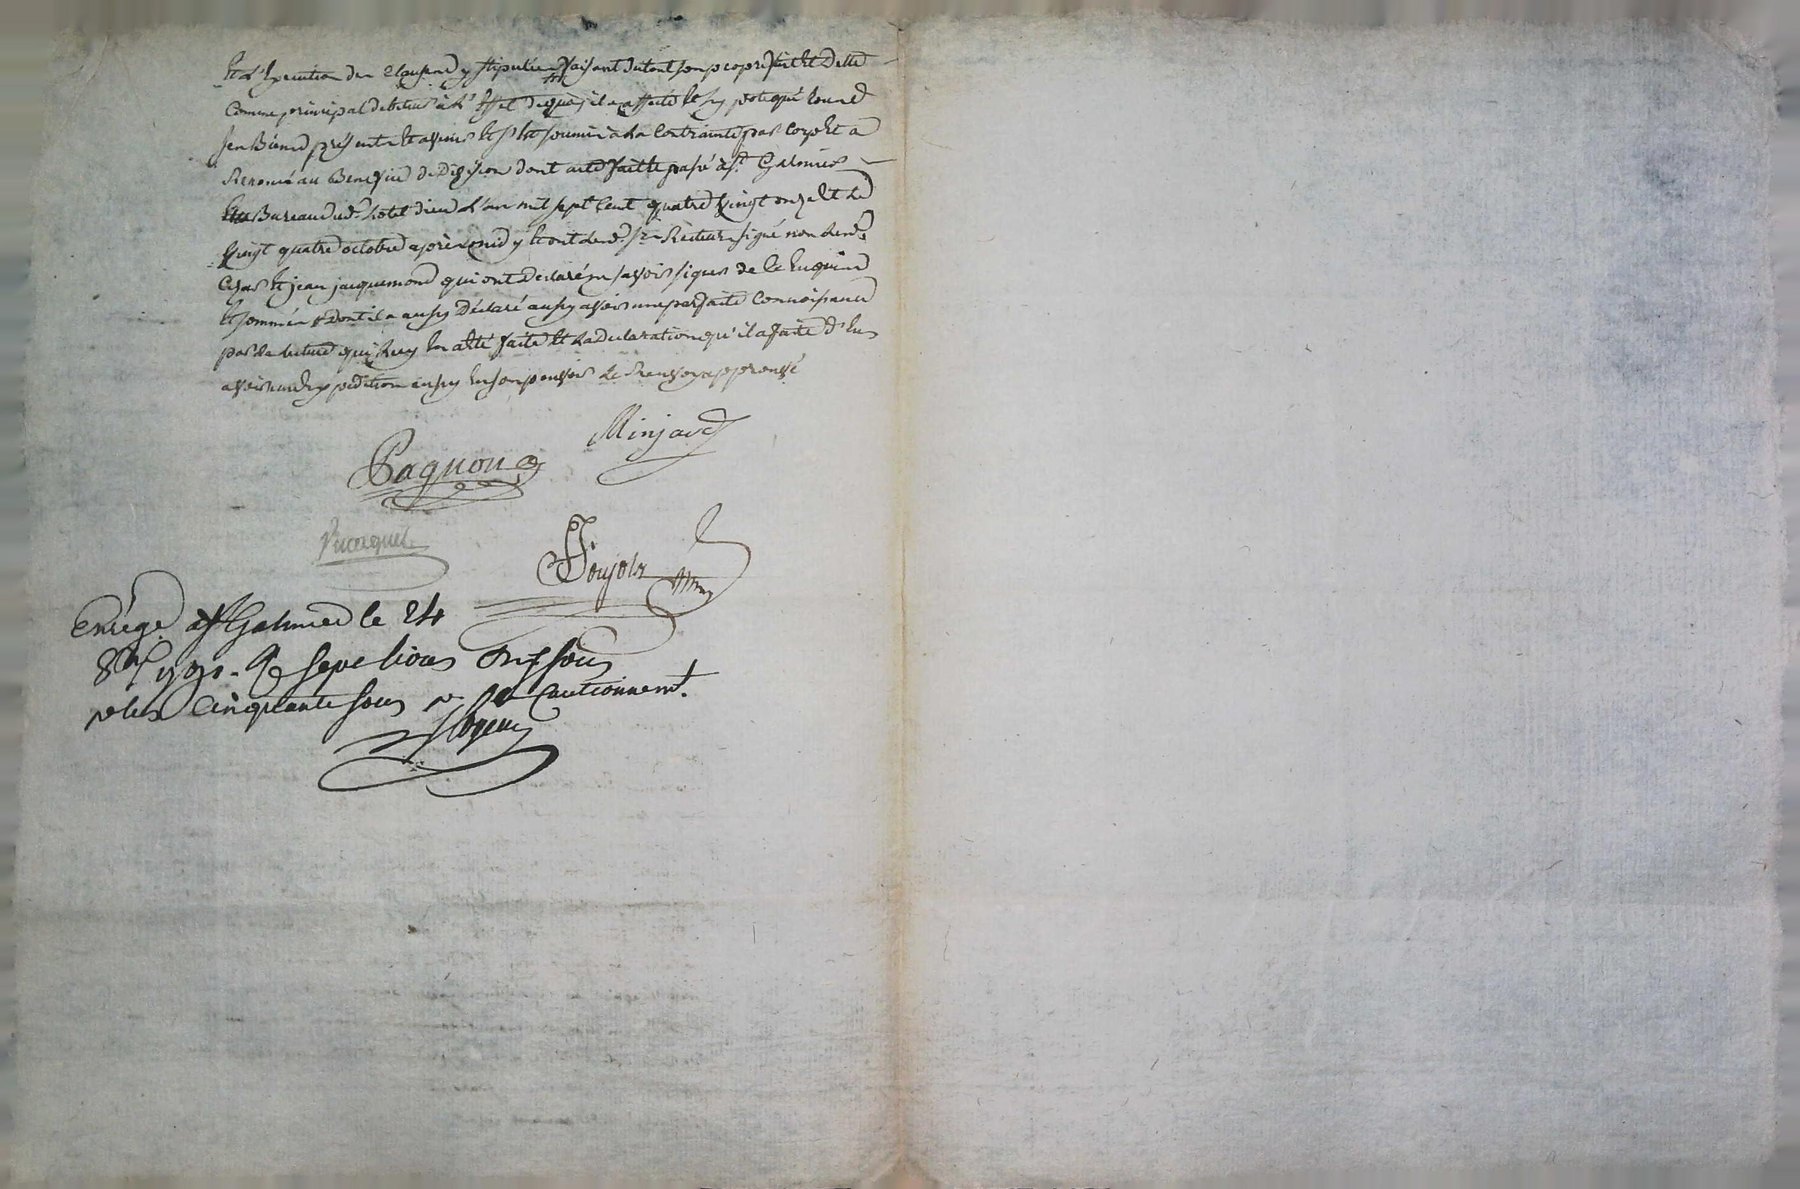 et l'execution des clauses y stipulées faisant du tout son propre fait et dette
comme principal debiteur à l'effet de quoy il a affecté et hypotequé tous
ses Biens présents et avenir et s'est soumis à la Contrainte par Corps et a
Renoncé au Benefice de Division dont acte fait et passé à st. Galmier
Bureau dud. hotel dieu l'an mil sept Cent quatre vingt onze et le
vingt quatre octobre après midy et ont lesd. srs Recteurs signé non lesd.
et jean jacquemond qui ont declaré ne savoir signer de ce enquis
et sommés dont il a aussy Déclaré aussy avoir une parfaite Connoissance
par la lecture qui luy en a été faite et la declaration qu'il a faite d'en
avoir une expedition aussy en son pouvoir le Renvoy approuvé
Minjard
Pagnon
Poujols
Enregé. à st Galmier le 24
8bre 1791. R sept livres six sous
plus Cinquante sous pr le Cautionnemt.